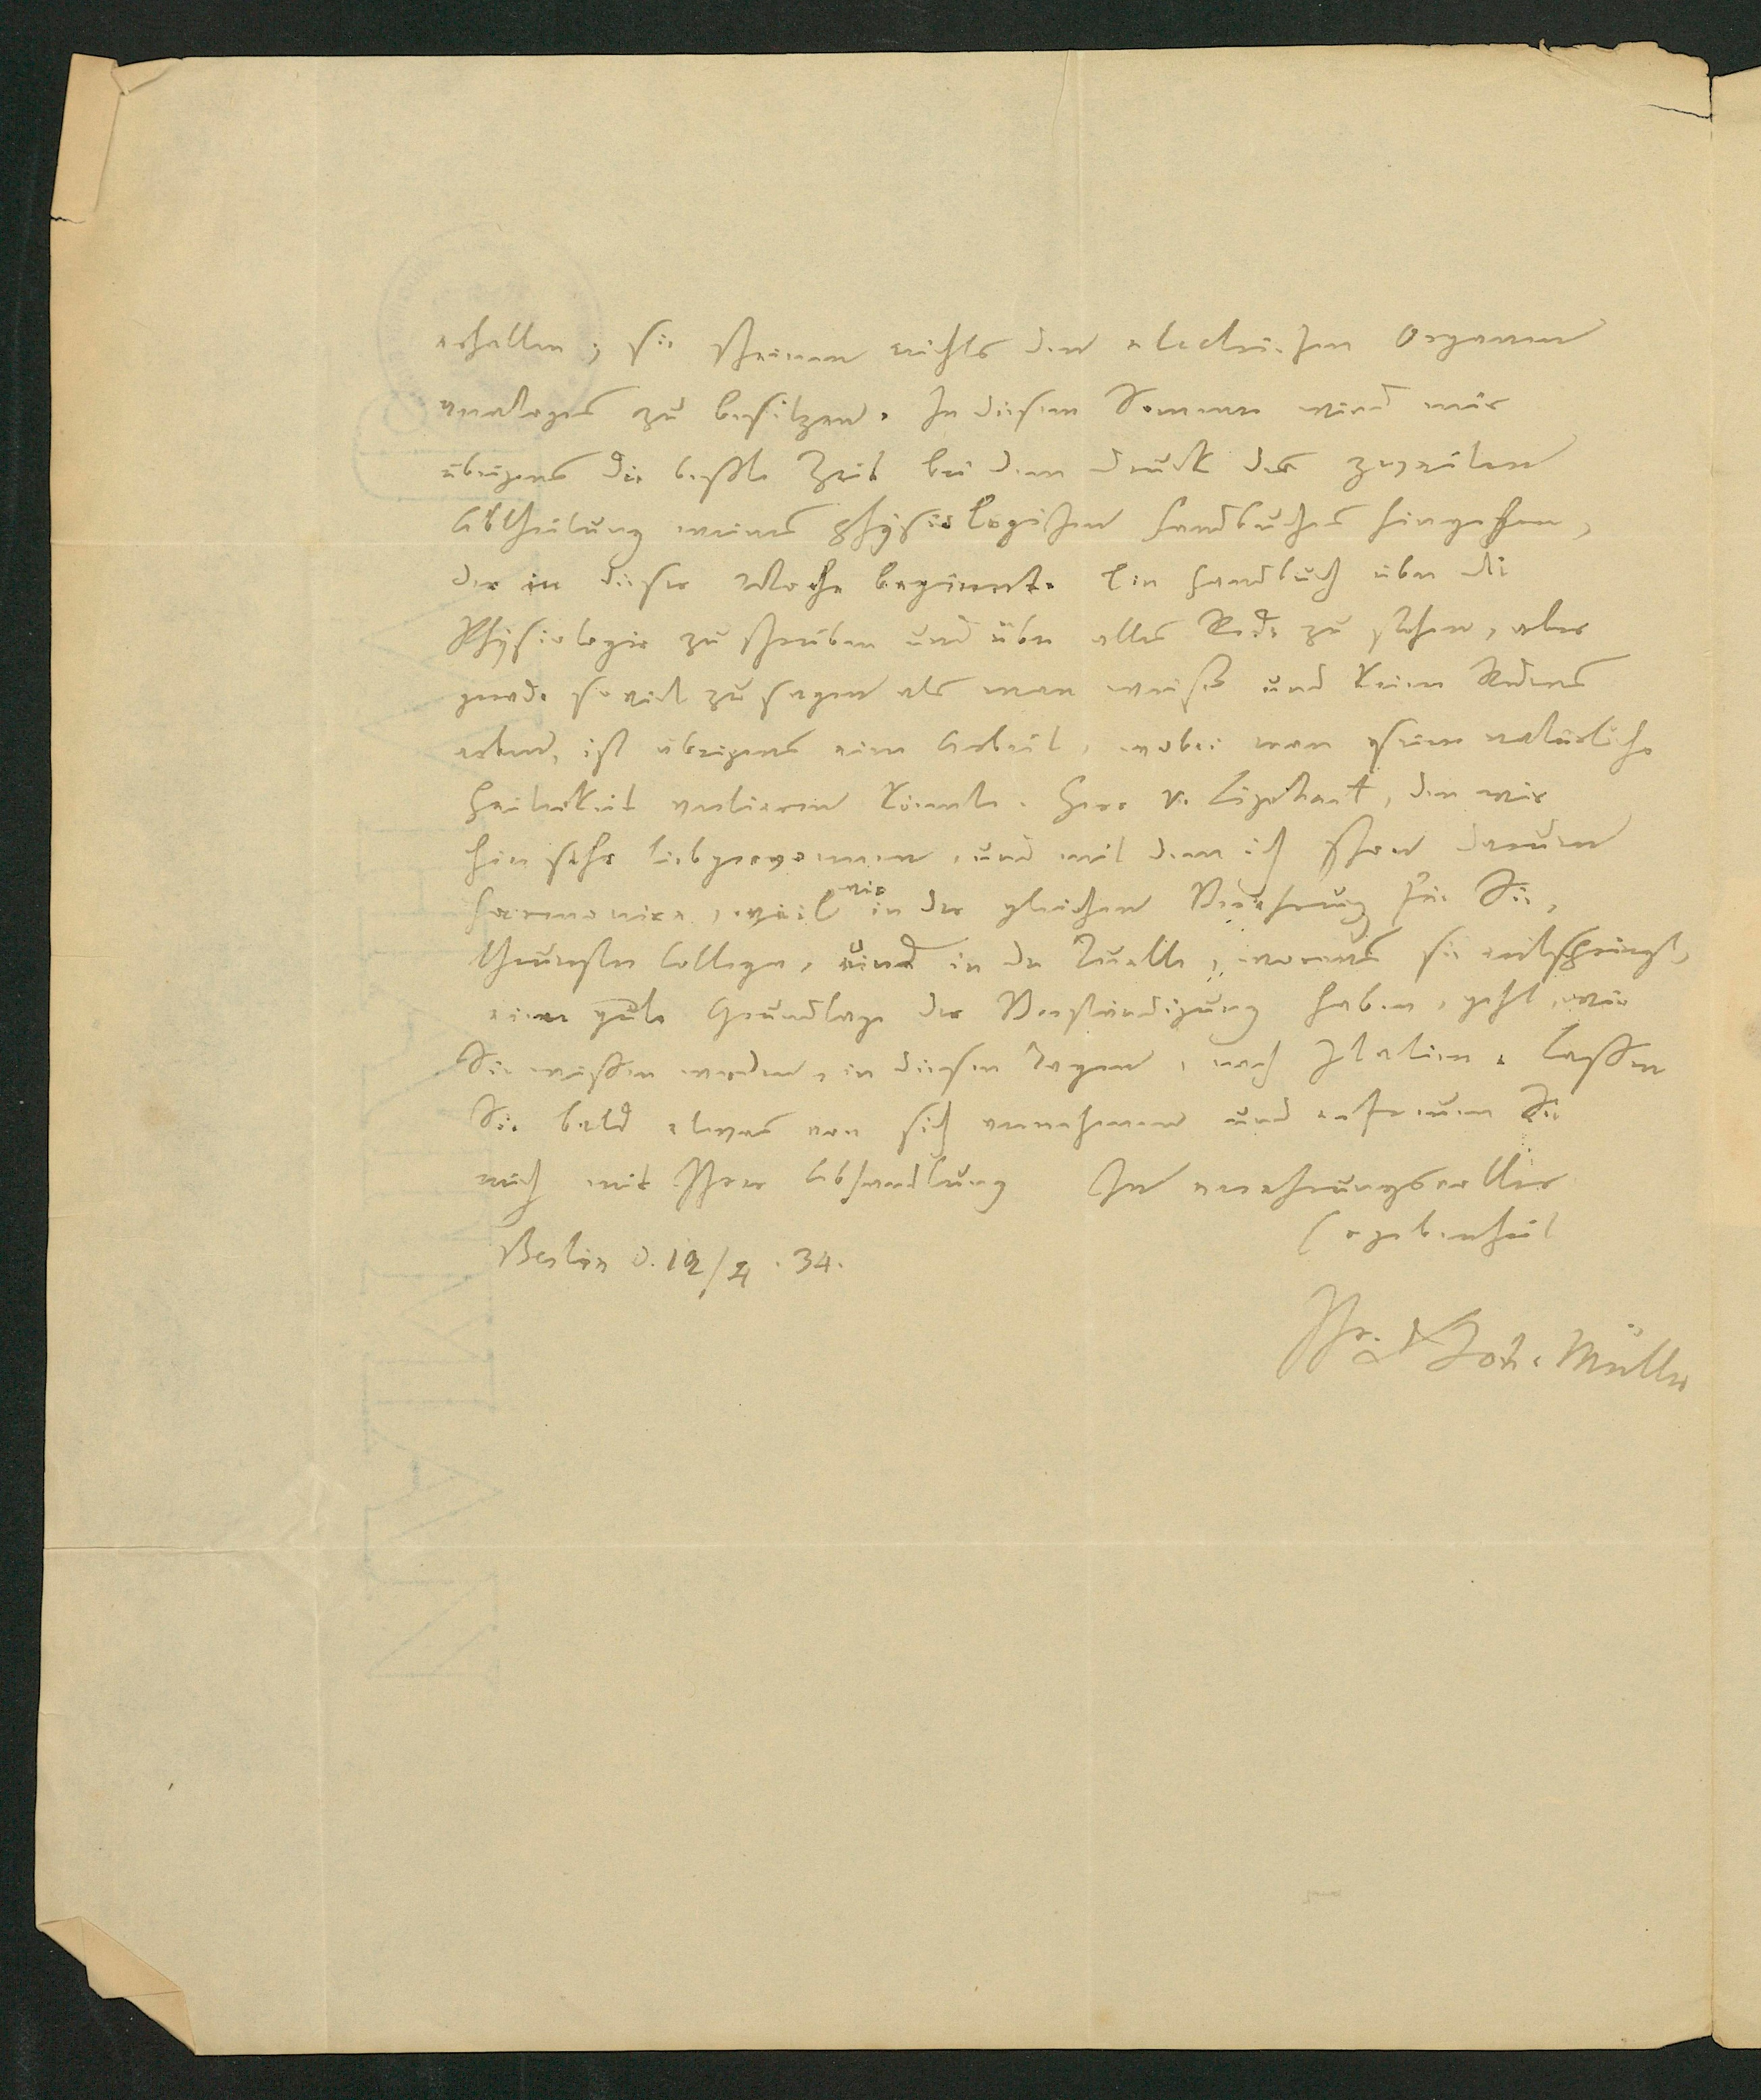 erhalten; sie scheinen nichts den electrischen Organen
analoges zu besitzen. In diesem Sommer wird mir
übrigens die beste Zeit bei dem Druck der zweiten
Abtheilung meines physiologischen Handbuches hingehen,
der in dieser Woche beginnt. Ein Handbuch über die
Physiologie zu schreiben und über alles Rede zu stehen, aber
grade so viel zu sagen als man weiß und keinen
ist übrigens eine Arbeit, wobei man seine natürliche
Heiterkeit verlieren könnte. Herr v. den wir
hier sehr liebgewonnen, und mit dem ich schon darum
harmonire, weil wir in der gleichen Verehrung für Sie,
theurster College, und in der Quelle, woraus sie entspringt,
eine gute Grundlage der Verständigung haben, geht, wie
Sie wissen werden, in diesen Tagen, nach Italien. Lassen
Sie bald etwas von sich vernehmen und erfreuen Sie
mich mit Ihrer Abhandlung In verehrungsvoller
Ergebenheit
Berlin d. 12/4. 34.
Ihr Joh. Müller